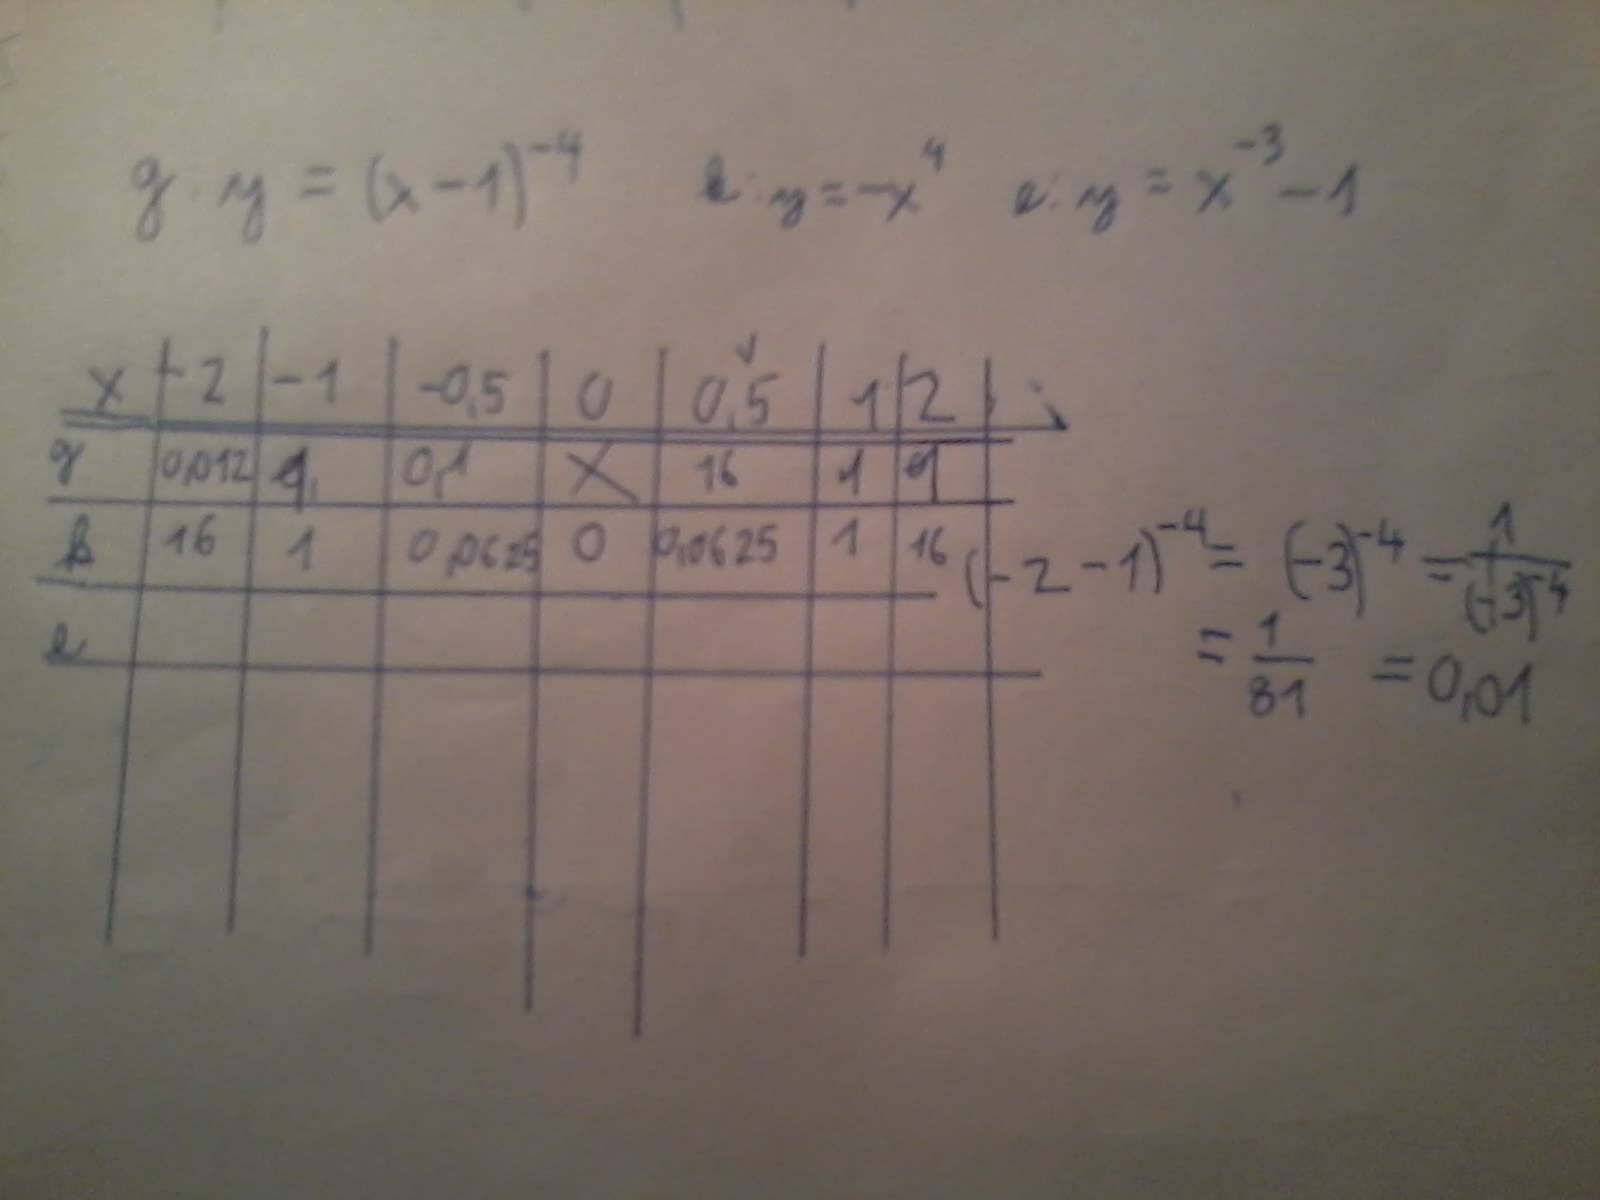 g: y = (x-1)⁻⁴ k: y = -x⁴ e: y = x⁻³ - 1
x -2 -1 -0,5 0 0,5 1 2
g 0,012 1 0,1 X 16 1 1
k 16 1 0,0625 0 0,0625 1 16
e
(-2-1)⁻⁴ = (-3)⁻⁴ = 1/(-3)⁻⁴
= 1/81 = 0,01